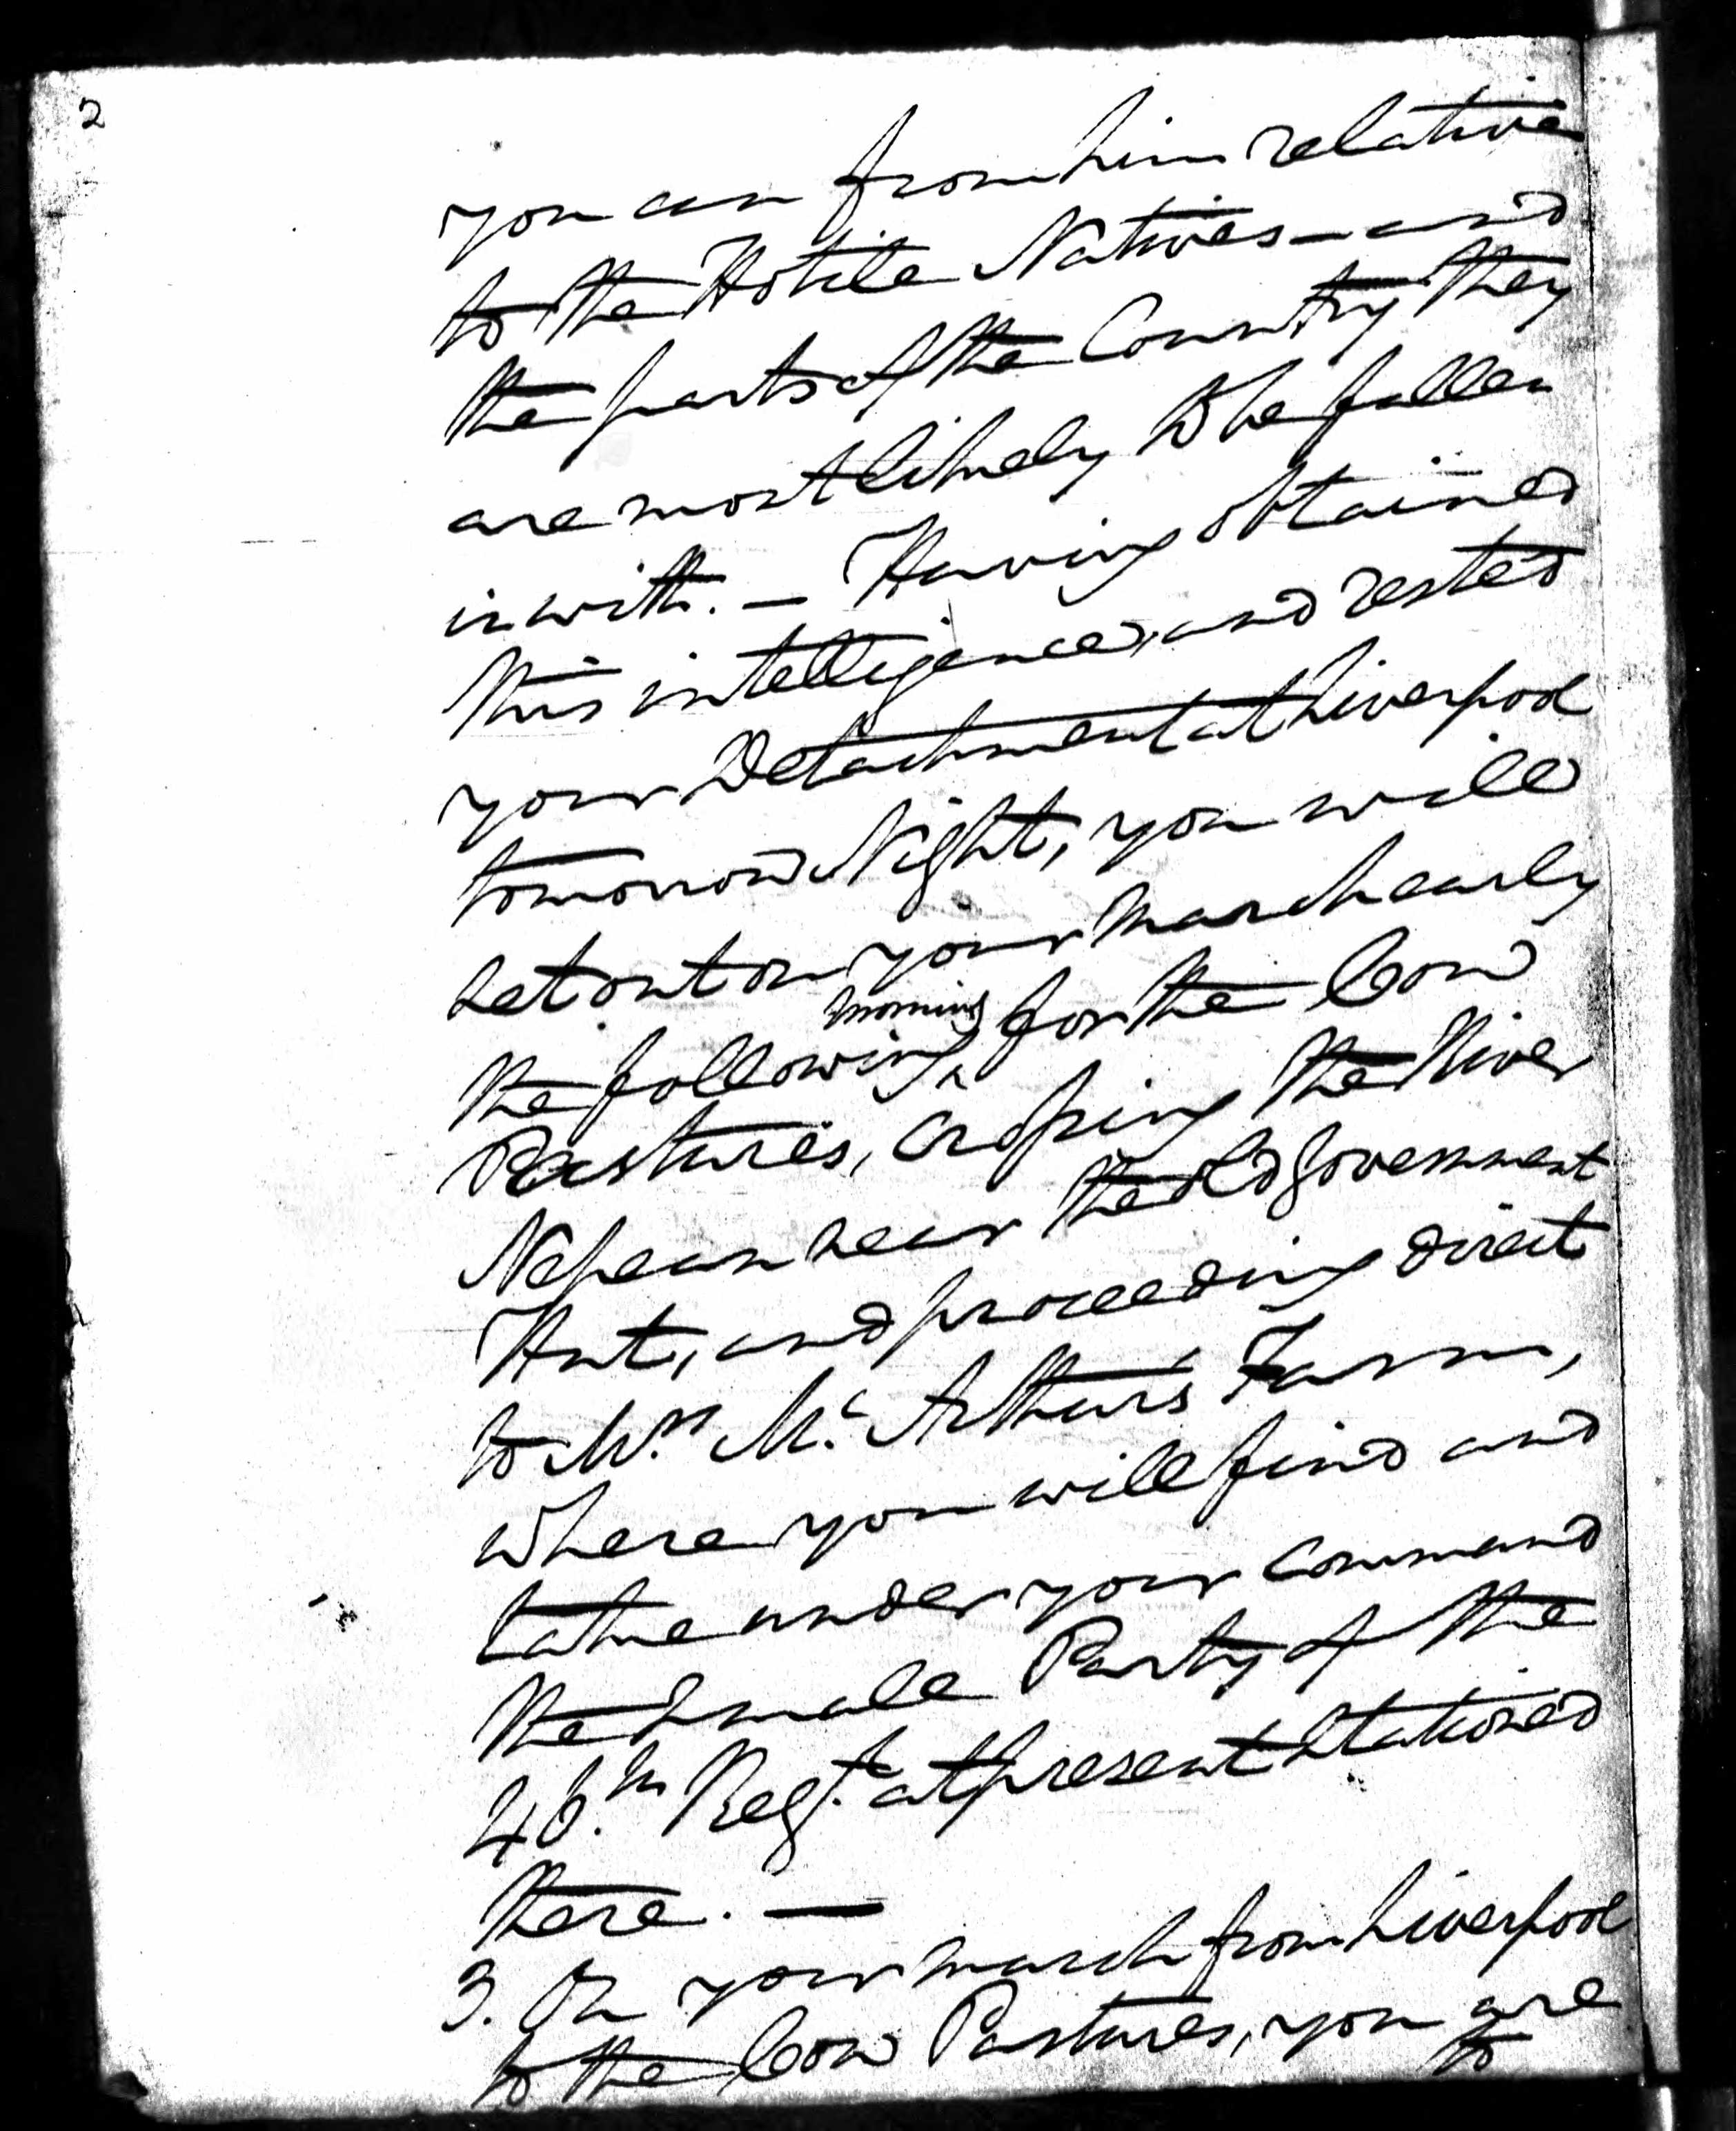 2
you can from him relative
to the Hotile Natives — and
the parts of the Country they
are most likely to be fallen
in with. — Having obtained
this intelligence, and rested
your Detachment at Liverpool
tomorrow Night, you will
set out on your march early
the following ^morning for the Cow
Pastures, crossing the River
Nepean near the old Government
Hut, and proceeding direct
to Mrs. McArthur's Farm,
where you will find and
take under your command
the small Party of the
46.th Regt. at present stationed
there. —
3. On your march from Liverpool
to the Cow Pastures, you are
to